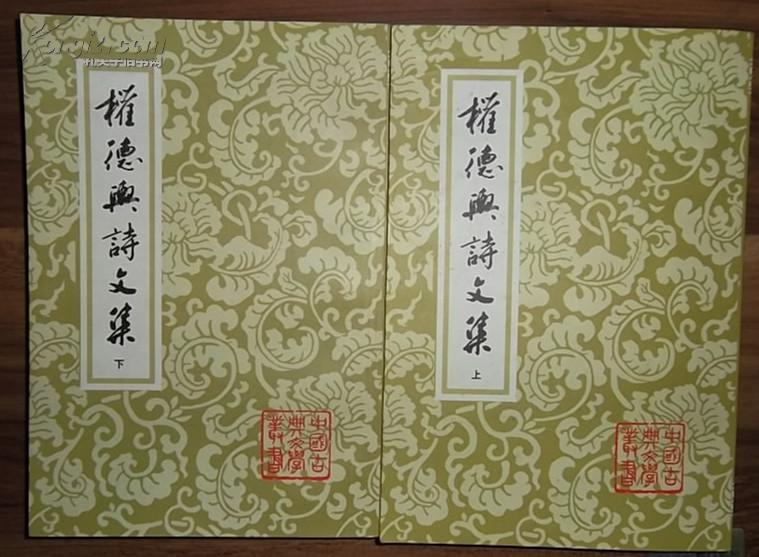 Kongfz.com
孔夫子旧书网
權德輿詩文集
下
中國古
典文學
叢書
權德輿詩文集
上
中國古
典文學
叢書